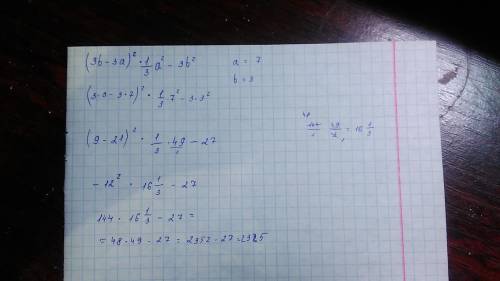 (3b-3a)² · 1/3 a² - 3b²
a = 7
b = 3
(3·3-3·7)² · 1/3 7² - 3·3²
(9-21)² · 1/3 · 49/1 - 27
-12² · 16 1/3 - 27
144 · 16 1/3 - 27 =
= 48 · 49 - 27 = 2352 - 27 = 2325
= 16 1/3